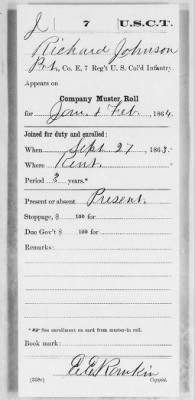 J 7 U.S.C.T.
Richard Johnson
Pvt, Co. E, 7 Reg't U. S. Col'd Infantry.
Appears on
Company Muster Roll
for Jan & Feb, 1864.
Joined for duty and enrolled:
When Sept 27, 1863.
Where Kent.
Period 3 years.*
Present or absent Present.
Stoppage, $ 100 for
Due Gov't $ 100 for
Remarks:
* See enrollment on card from muster-in roll.
Book mark:
E E Rankin
(358c) Copyist.